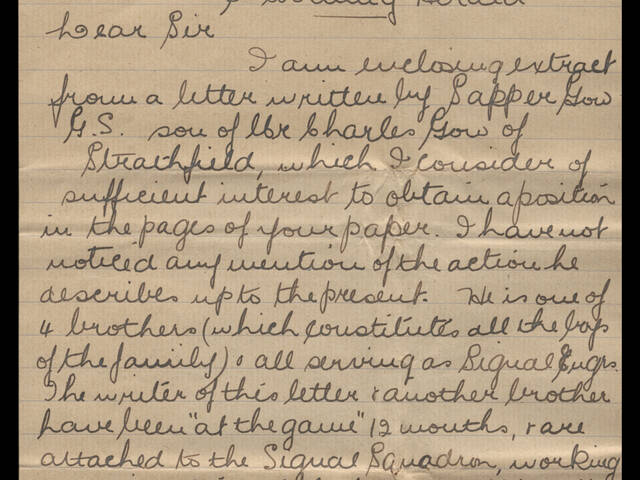 Morning Herald
Dear Sir
I am enclosing extract
from a letter written by Sapper Gow
G.S. son of Mr Charles Gow of
Strathfield, which I consider of
sufficient interest to obtain a position
in the pages of your paper. I have not
noticed any mention of the action he
describes up to the present. He is one of
4 brothers (which constitutes all the boys
of the family) & all serving as Signal Engrs.
The writer of this letter & another brother
have been "at the game" 12 months, & are
attached to the Signal Squadron, working